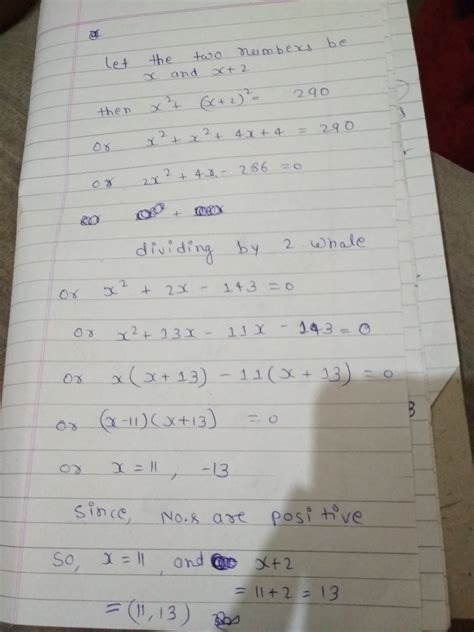 Let the two numbers be
x and x+2
then x² + (x+2)² = 290
or x² + x² + 4x + 4 = 290
or 2x² + 4x - 286 = 0
dividing by 2 whale
or x² + 2x - 143 = 0
or x² + 13x - 11x - 143 = 0
or x(x+13) - 11(x+13) = 0
or (x-11)(x+13) = 0
or x = 11, -13
Since, No.s are positive
So, x = 11, and x+2
= 11+2 = 13
= (11, 13)